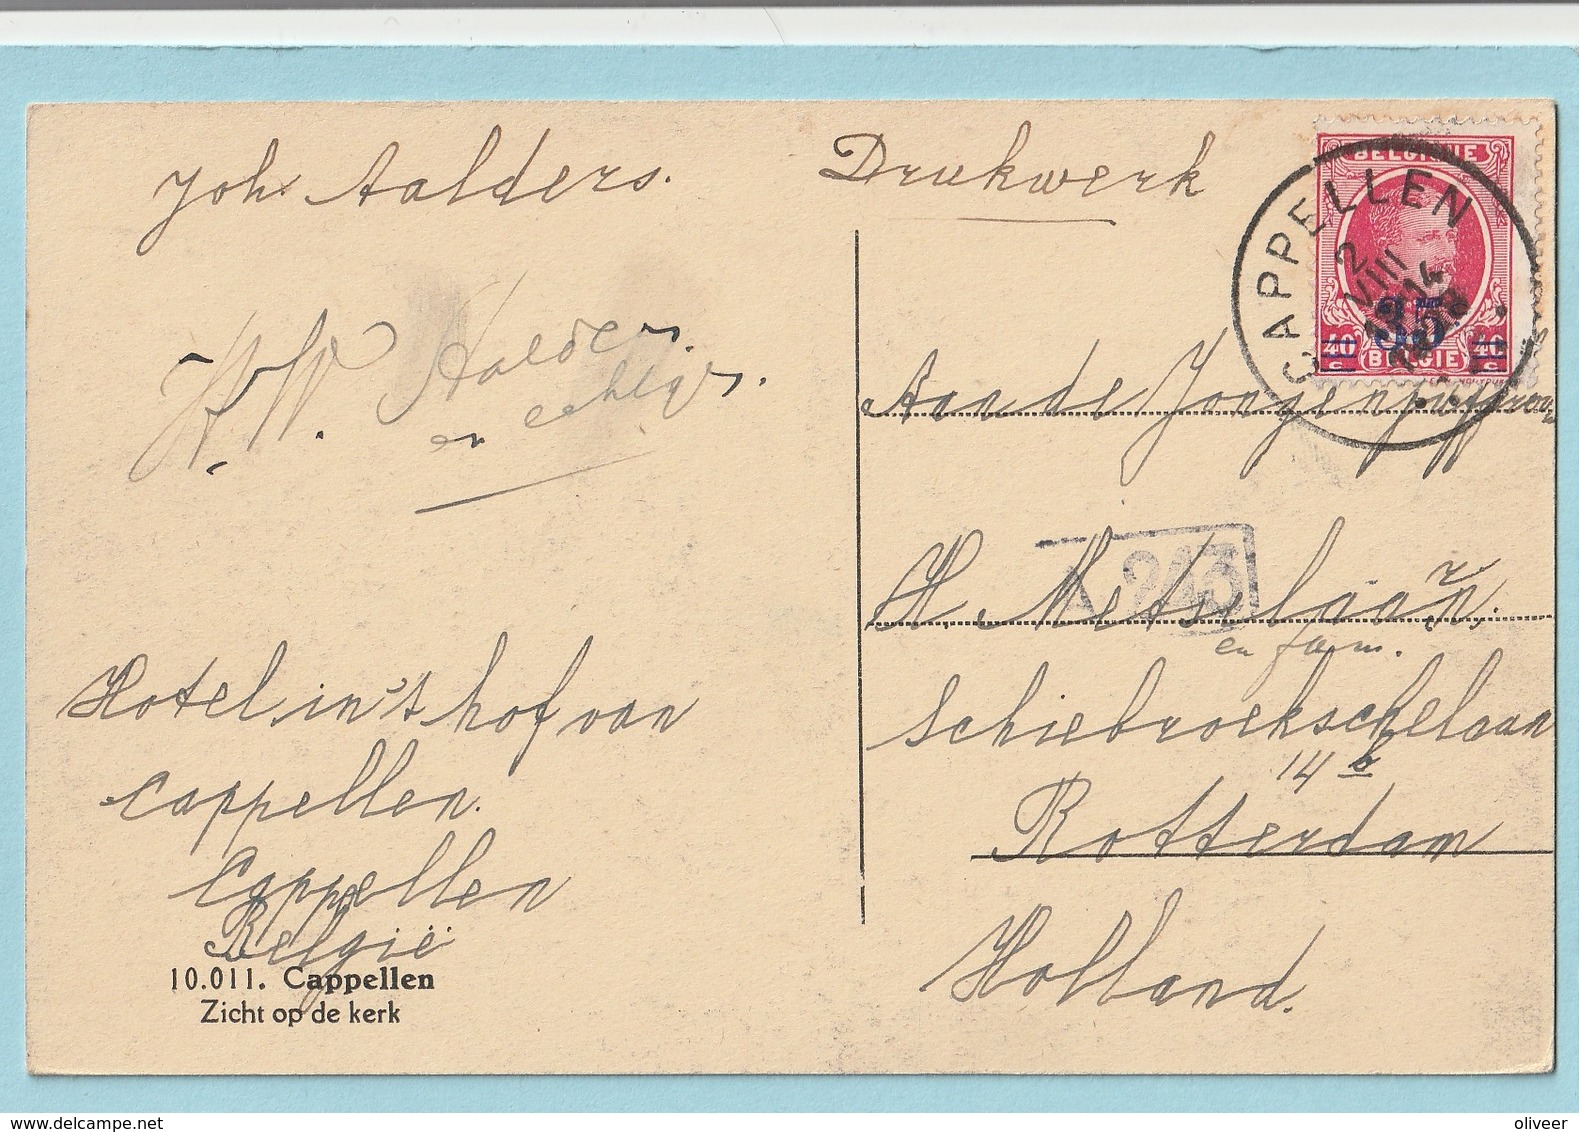 Joh. Aalders.
W. W. Aalders.
en echtgn.
Hotel in 't hof van
Cappellen.
Cappellen
België
10.011. Cappellen
Zicht op de kerk
Drukwerk
BELGIQUE
35
40 BELGIË 40
c c
CAPPELLEN
2
VIII
14
Aan de Jongenjuffrouw
A 243
H. Metselaar.
en fam.
Schiebroekschelaan
14 b
Rotterdam
Holland.
www.delcampe.net
oliveer